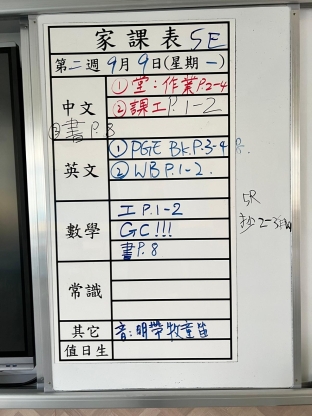 家課表 5E
第二週 9月9日(星期一)
中文
①堂:作業P.2-4
②課工P.1-2
③書P.8
英文
①PGE Bk.P.3-4
②WB P.1-2.
數學
工P.1-2
GC!!!
書P.8
常識
其它
音:明帶牧童笛
值日生
5R
抄2-3